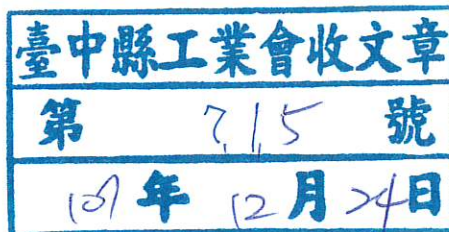 臺中縣工業會收文章
第 715 號
107年12月24日